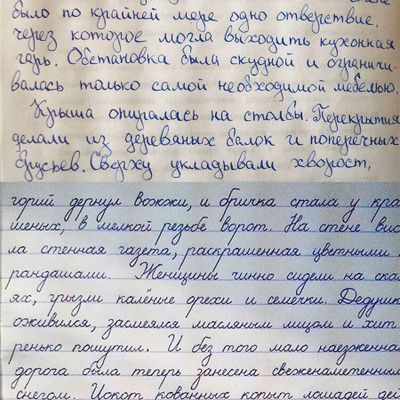 было по крайней мере одно отверстие,
через которое могла выходить кухонная
гарь. Обстановка была скудной и ограничи-
валась только самой необходимой мебелью.
Крыша опиралась на столбы. Перекрытия
делали из деревяных балок и поперечных
брусьев. Сверху укладывали хворост,
горий дернул вожжи, и бричка стала у кра
шеных, в мелкой резьбе ворот. На стене вис
ла стенная газета, раскрашенная цветными
рандашами. Женщины чинно сидели на ска
ях, грызли калёные орехи и семечки. Дедушк
оживился, засмеялся масляным лицом и хит
ренько пошутил. И без того мало наезженна
дорога была теперь занесена свеженаметенни
снегом. Цокот кованных копыт лошадей дей